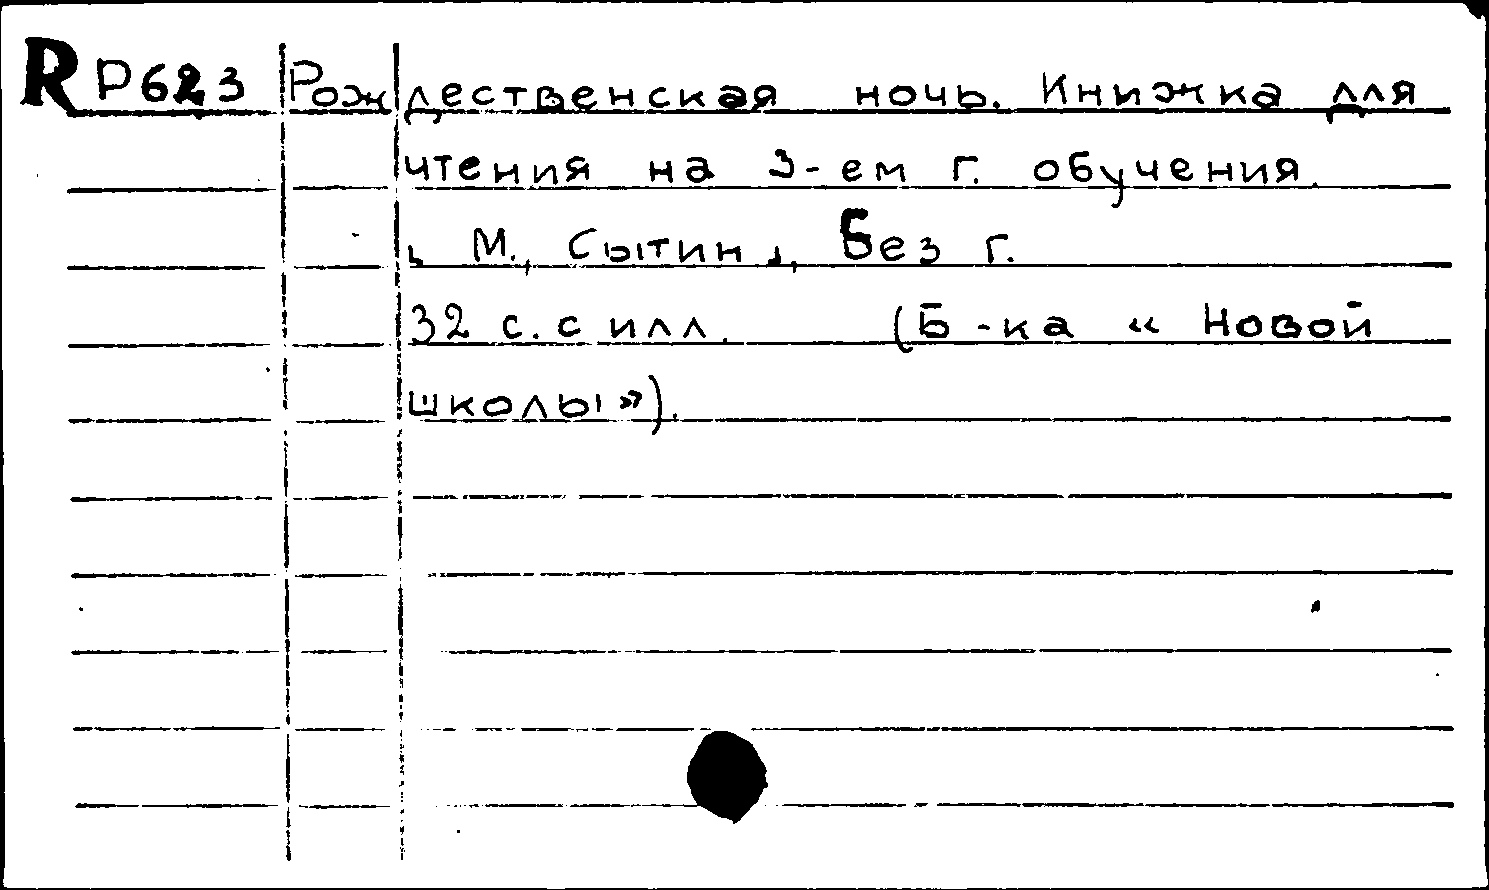 R Р623 Рождественская ночь. Книжка для
чтения на 3-ем г. обучения.
⌞ М., Сытин ⌟, Без г.
32 с. с илл. (Б-ка «Новой
школы»).